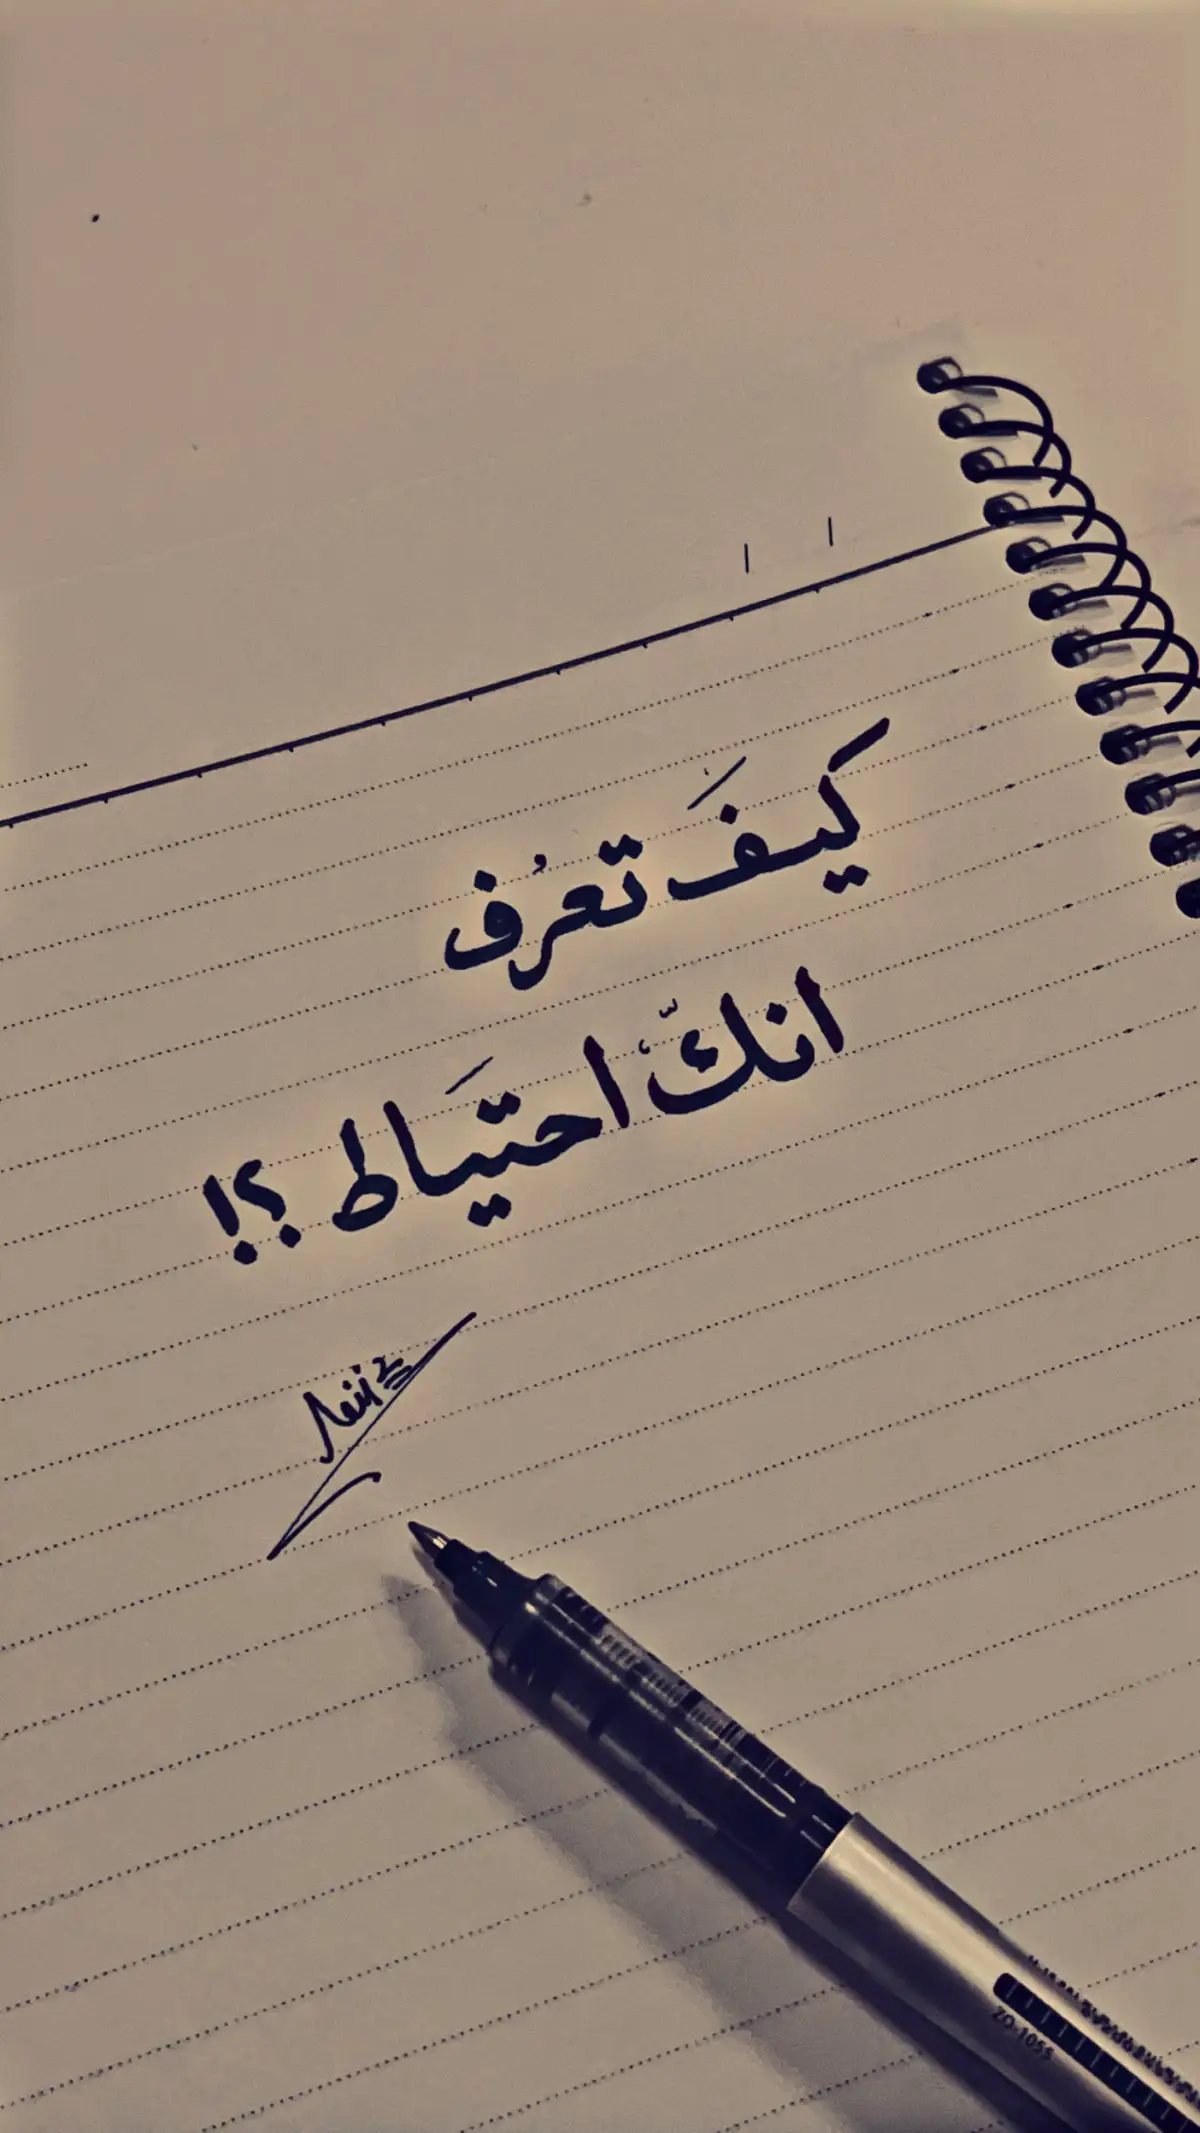 كيفَ تعرُف
انكّ احتيَاط ؟!
ZO-1055